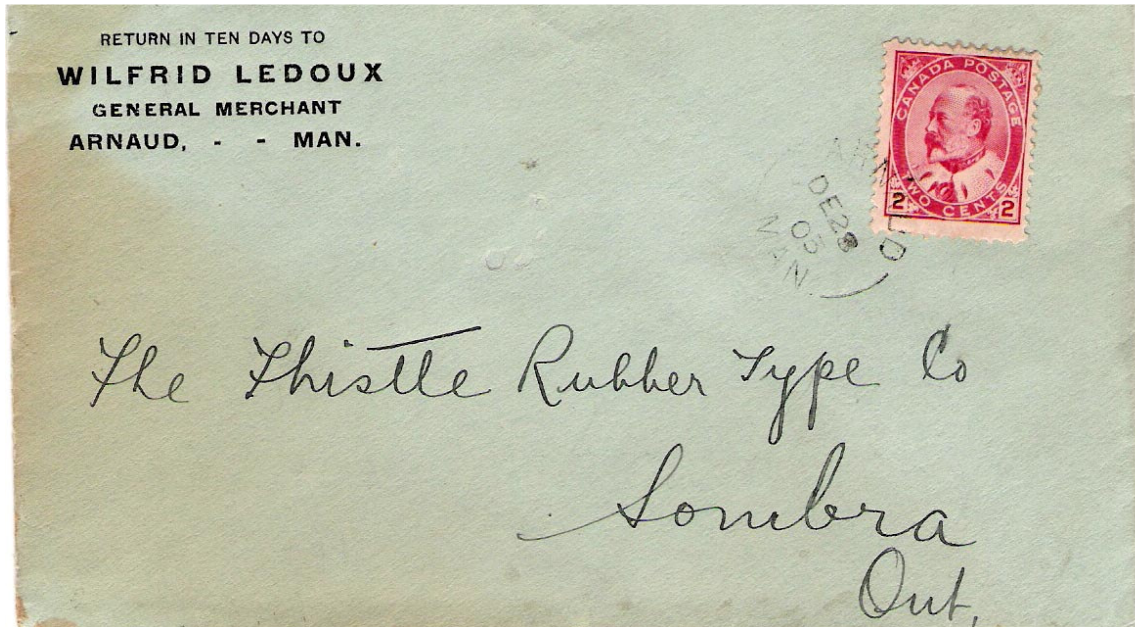 RETURN IN TEN DAYS TO
WILFRID LEDOUX
GENERAL MERCHANT
ARNAUD, - - MAN.
CANADA POSTAGE
2 TWO CENTS 2
ARNAUD
DE 28
05
MAN
The Thistle Rubber Type Co
Sombra
Ont.